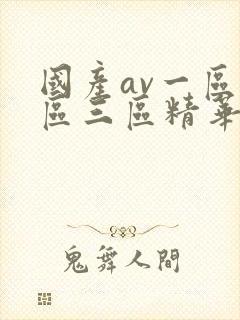 國產av一區
區三區精華
鬼舞人間